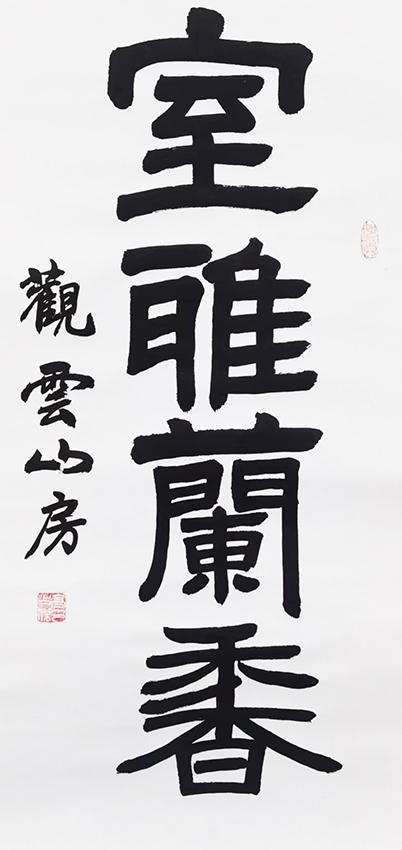 室雅蘭香
觀雲山房